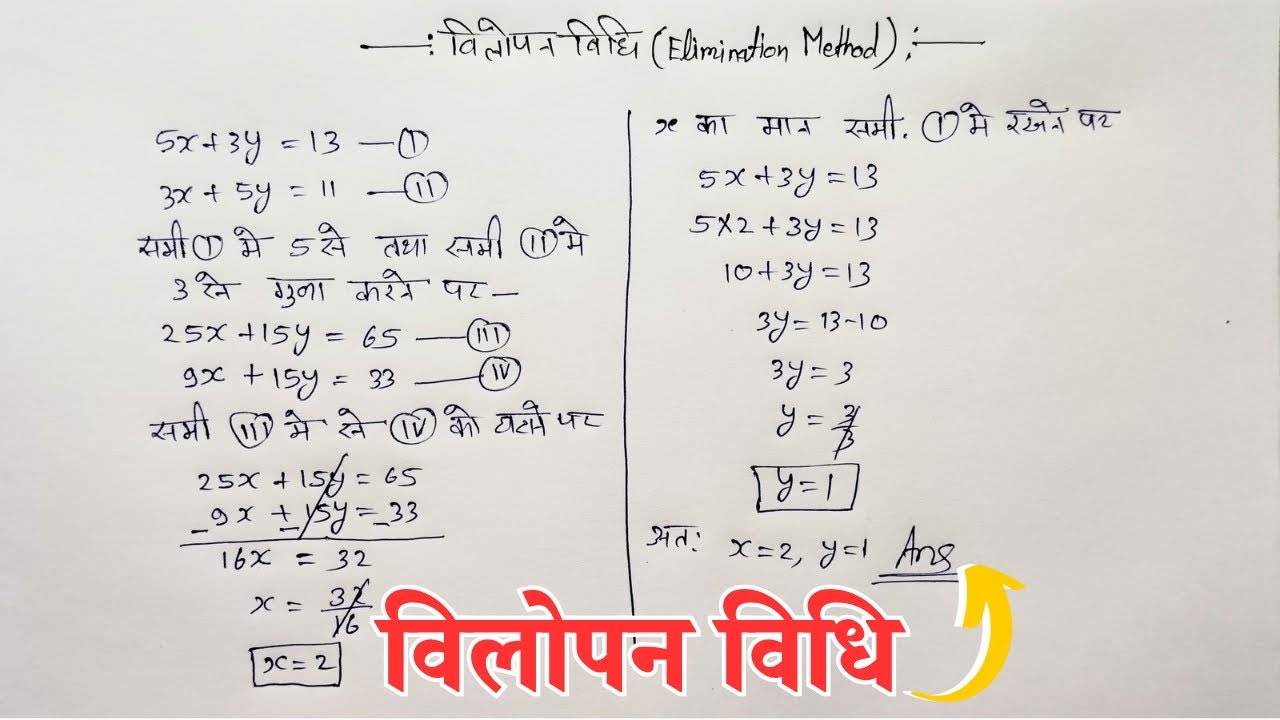 —: विलोपन विधि (Elimination Method) :—
5x+3y = 13 — (I)
3x + 5y = 11 — (II)
समी (I) मे 5 से तथा समी (II) मे
3 से गुना करने पर —
25x +15y = 65 — (III)
9x + 15y = 33 — (IV)
समी (III) मे से (IV) को घटाने पर
25x + 15y = 65
-9x ± 15y = -33
16x = 32
x = 32/16
x = 2
x का मान समी. (I) मे रखने पर
5x+3y=13
5×2+3y=13
10+3y=13
3y=13-10
3y=3
y = 3/3
y=1
अतः x=2, y=1 Ans
विलोपन विधि